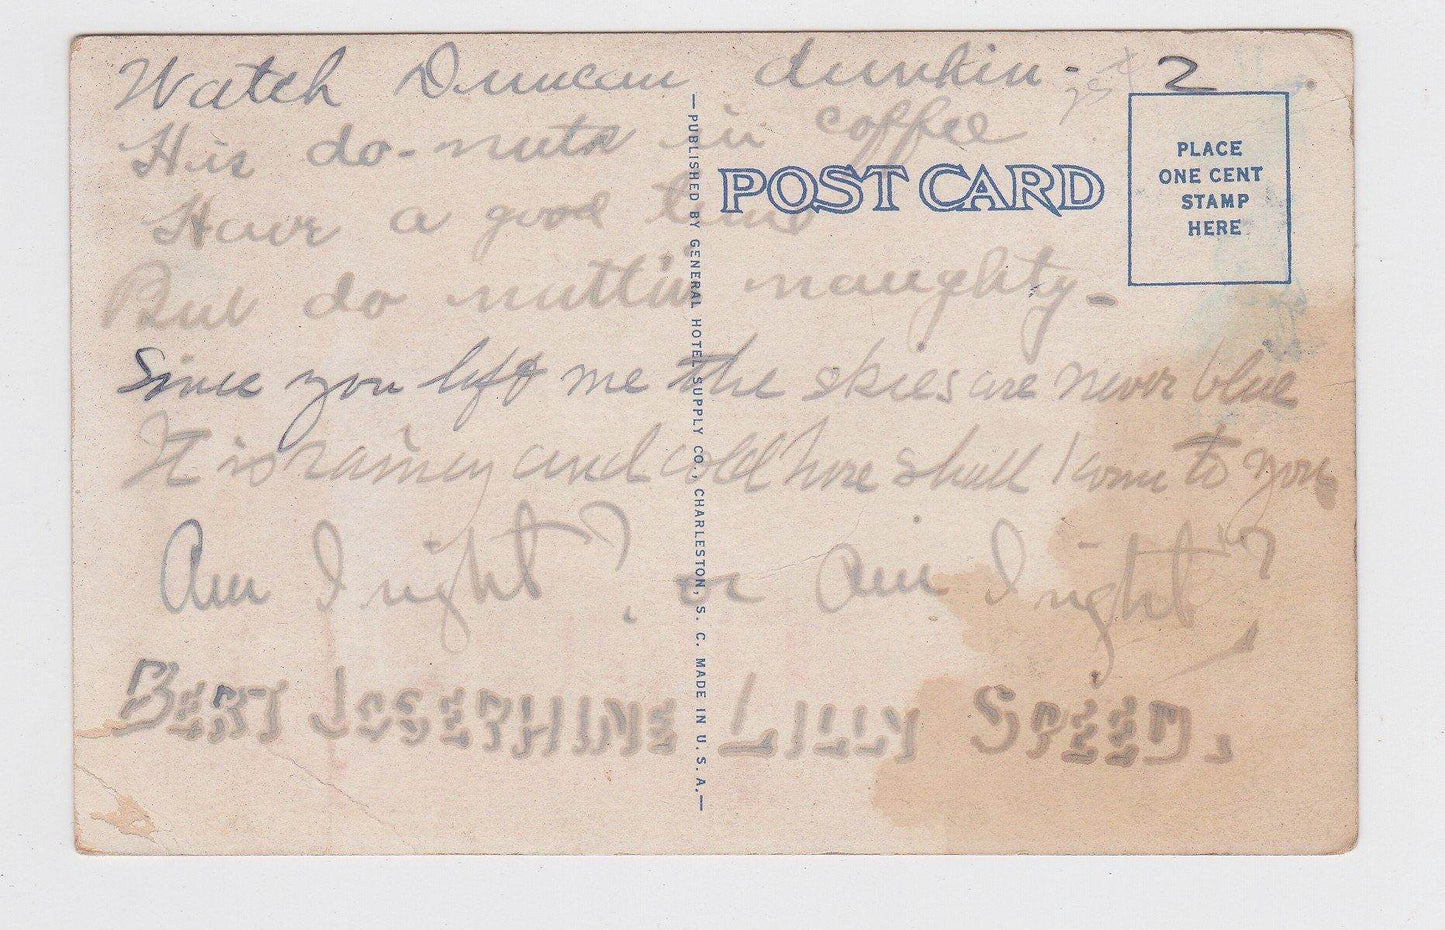 Watch Duncan dunkin - 2
His do-nuts in coffee
Have a good time
But do nuttin naughty -
Since you left me the skies are never blue
It is rainey and cold here shall I come to you
Am I right? or Am I right?
BERT JOSEPHINE LILLY SPEED.
POST CARD
PLACE
ONE CENT
STAMP
HERE
—PUBLISHED BY GENERAL HOTEL SUPPLY CO., CHARLESTON, S. C. MADE IN U. S. A.—